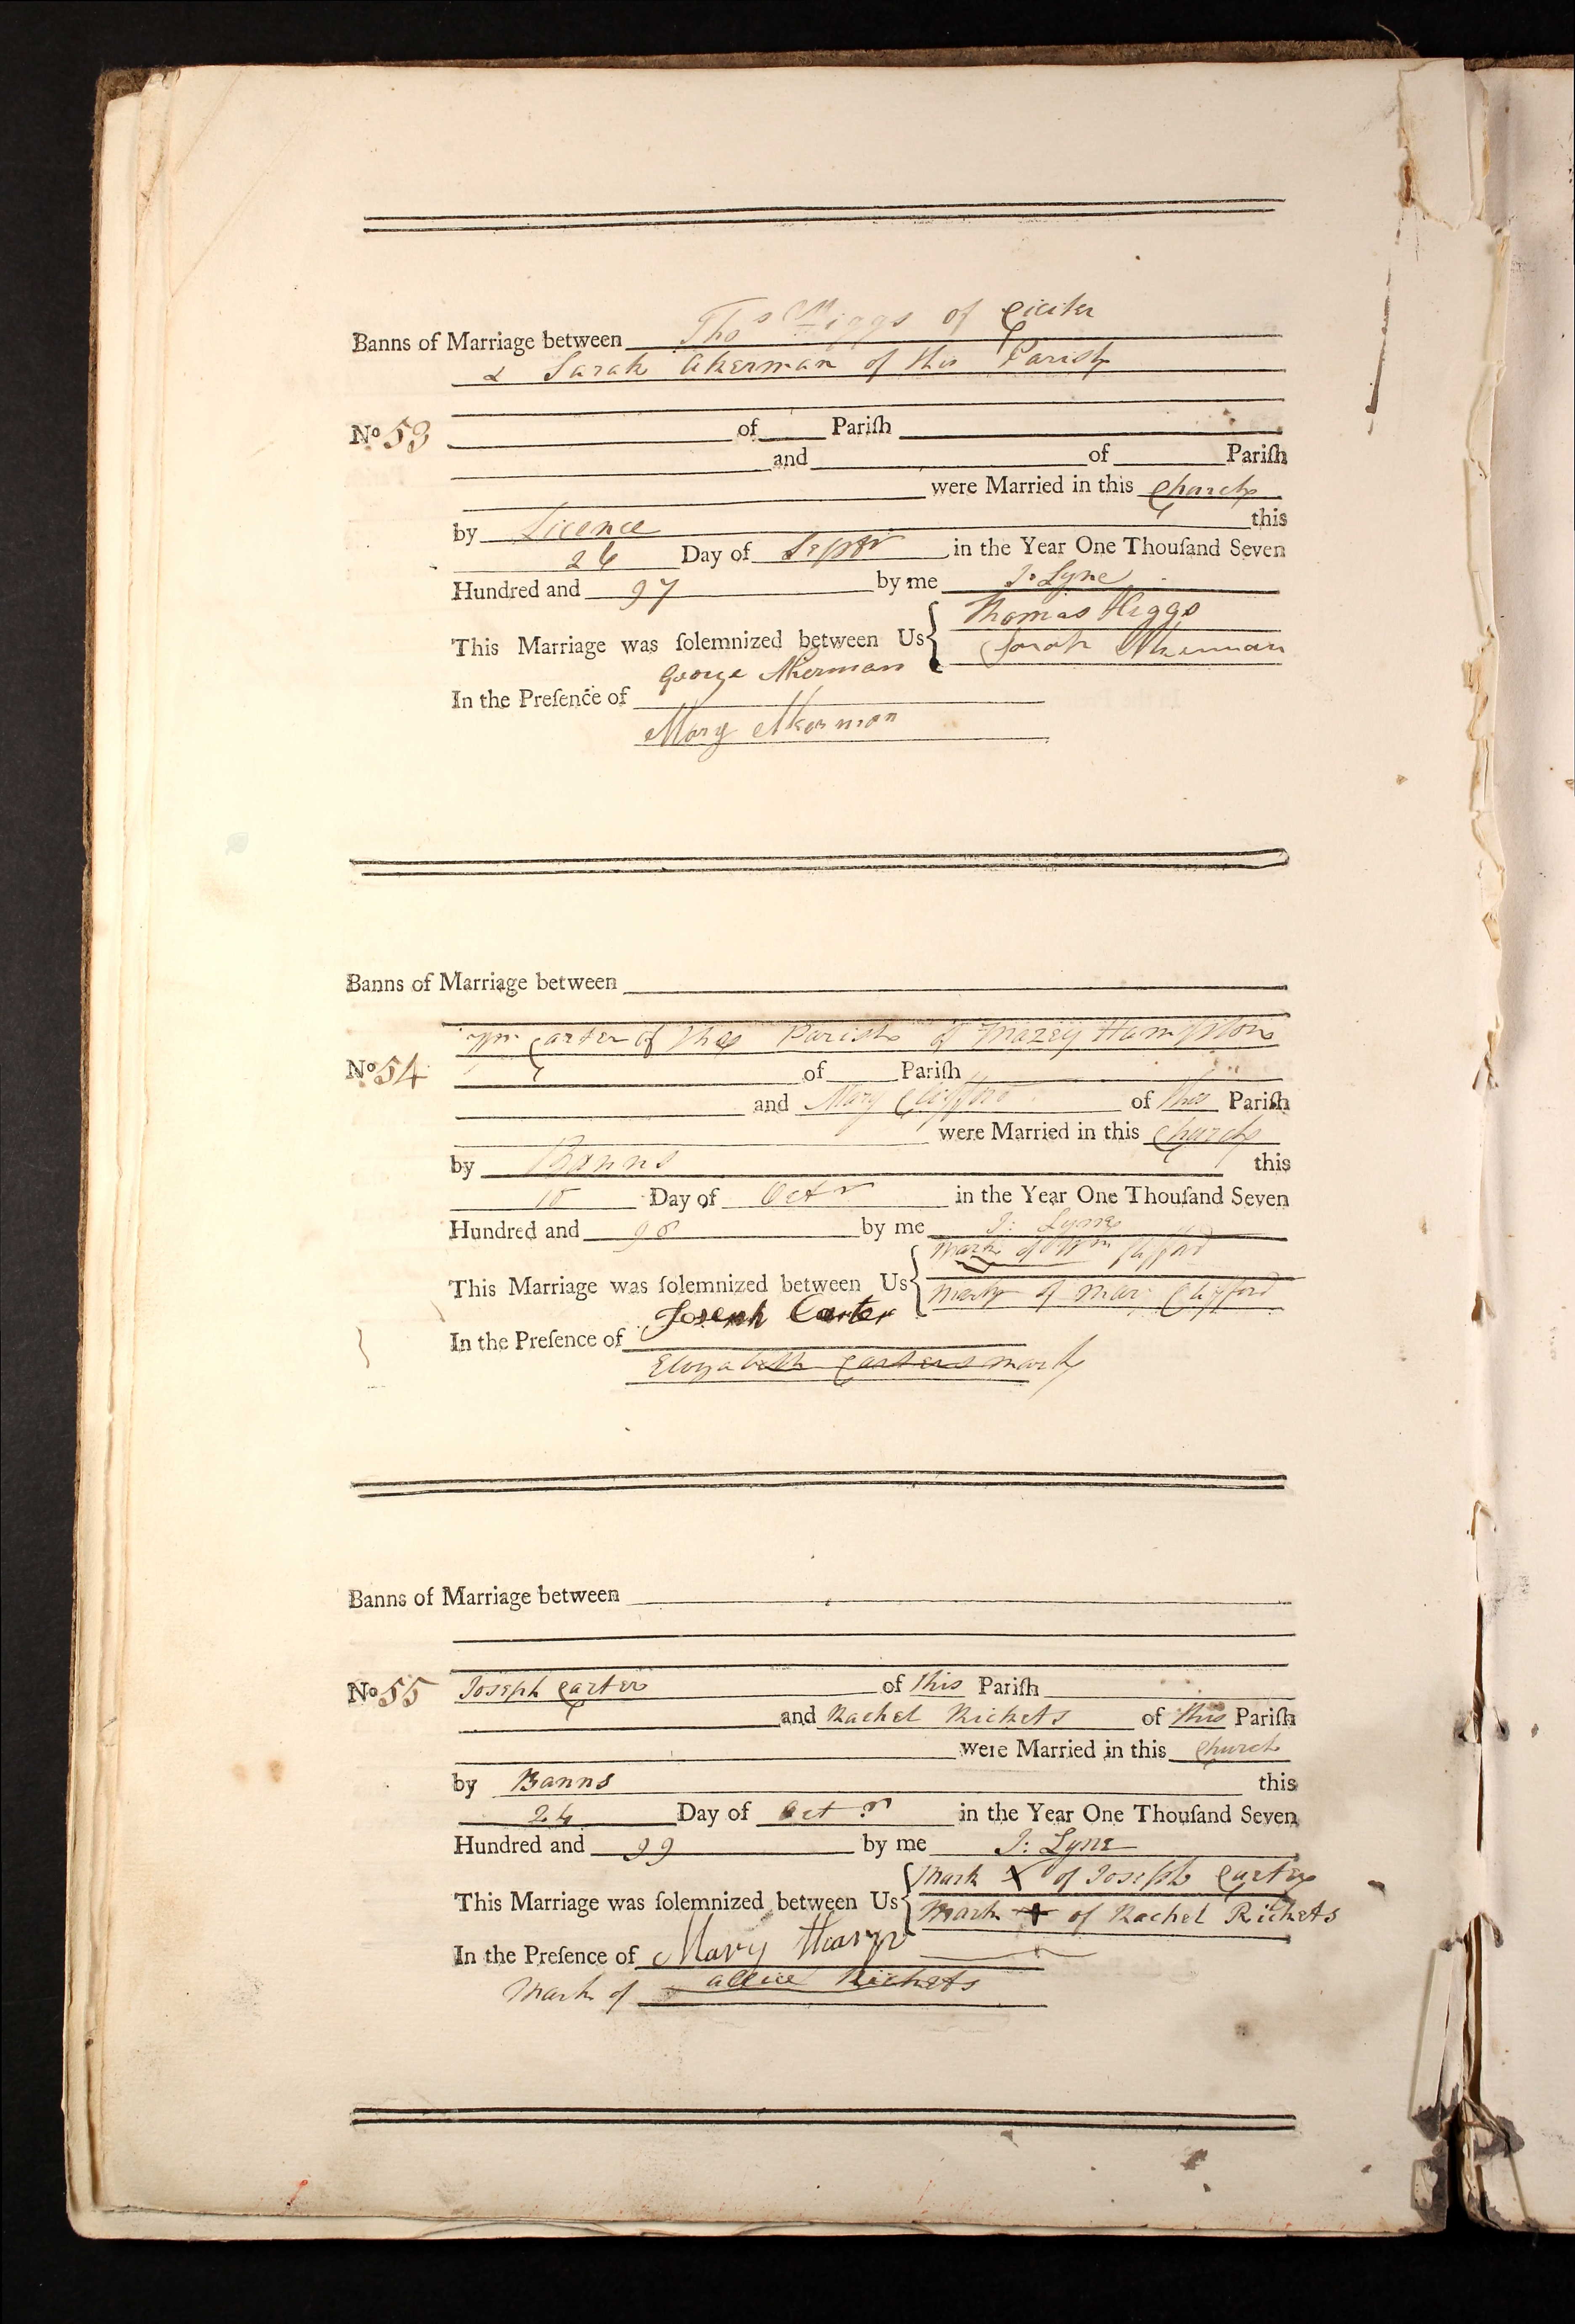 Banns of Marriage between Thos Higgs of Ciciter
& Sarah Akerman of this Parish
No 53 of Pariſh
and of Pariſh
were Married in this Church
by Licence this
26 Day of Septr in the Year One Thouſand Seven
Hundred and 97 by me J: Lyne
This Marriage was ſolemnized between Us { Thomas Higgs
Sarah Akerman
In the Preſence of George Akerman
Mary Akerman
Banns of Marriage between
Wm Carter of the Parish of Mazey Hampton
No 54 of Pariſh
and Mary Clifford of this Pariſh
were Married in this Church
by Banns this
Day of Octr in the Year One Thouſand Seven
Hundred and 98 by me J: Lyne
This Marriage was ſolemnized between Us { Mark of Wm Clifford
Mark of Mar: Clifford
In the Preſence of Joseph Carter
Elizabeth Carters mark
Banns of Marriage between
No 55 Joseph Carter of this Pariſh
and Rachel Rickets of this Pariſh
were Married in this Church
by Banns this
24 Day of Octr in the Year One Thouſand Seven
Hundred and 99 by me J: Lyne
This Marriage was ſolemnized between Us { Mark X of Joseph Carter
Mark + of Rachel Rickets
In the Preſence of Mary
Mark of Rickets